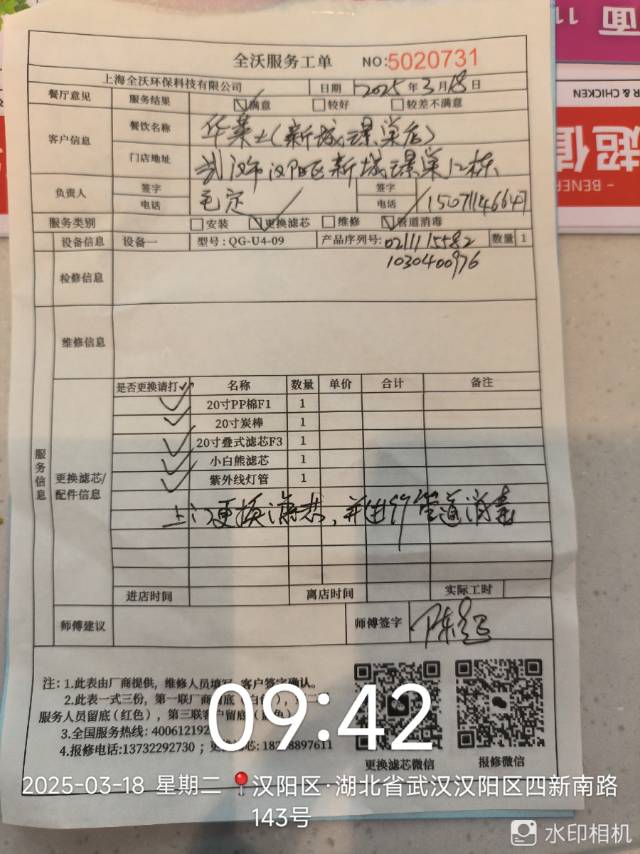 面
11
R & CHICKEN
超值
BENE
全沃服务工单 NO:5020731
上海全沃环保科技有限公司 日期 2025年3月18日
餐厅意见 服务结果 满意 较好 较差不满意
客户信息 餐饮名称 华莱士(新城璟巢店)
门店地址 武汉市汉阳区新城璟巢12栋
负责人 签字 签字
电话 毛定 电话
服务类别 安装 更换滤芯 维修 管道消毒
设备信息 设备一 型号:QG-U4-09 产品序列号: 021115582 数量 1
1030400976
检修信息
维修信息
服务信息
是否更换请打✓ 名称 数量 单价 合计 备注
✓ 20寸PP棉F1 1
✓ 20寸炭棒 1
✓ 20寸叠式滤芯F3 1
✓ 小白熊滤芯 1
✓ 紫外线灯管 1
更换滤芯/
配件信息
上门更换滤芯,并进行管道消毒
进店时间 离店时间 实际工时
师傅建议 师傅签字
注:1.此表由厂商提供,维修人员填写,客户签字确认。
2.此表一式三份,第一联厂商
服务人员留底(红色),第三联客户留底
3.全国服务热线:400612192
4.报修电话:13732292730;
更换滤芯微信 报修微信
09:42
2025-03-18 星期二 汉阳区·湖北省武汉汉阳区四新南路
143号
水印相机